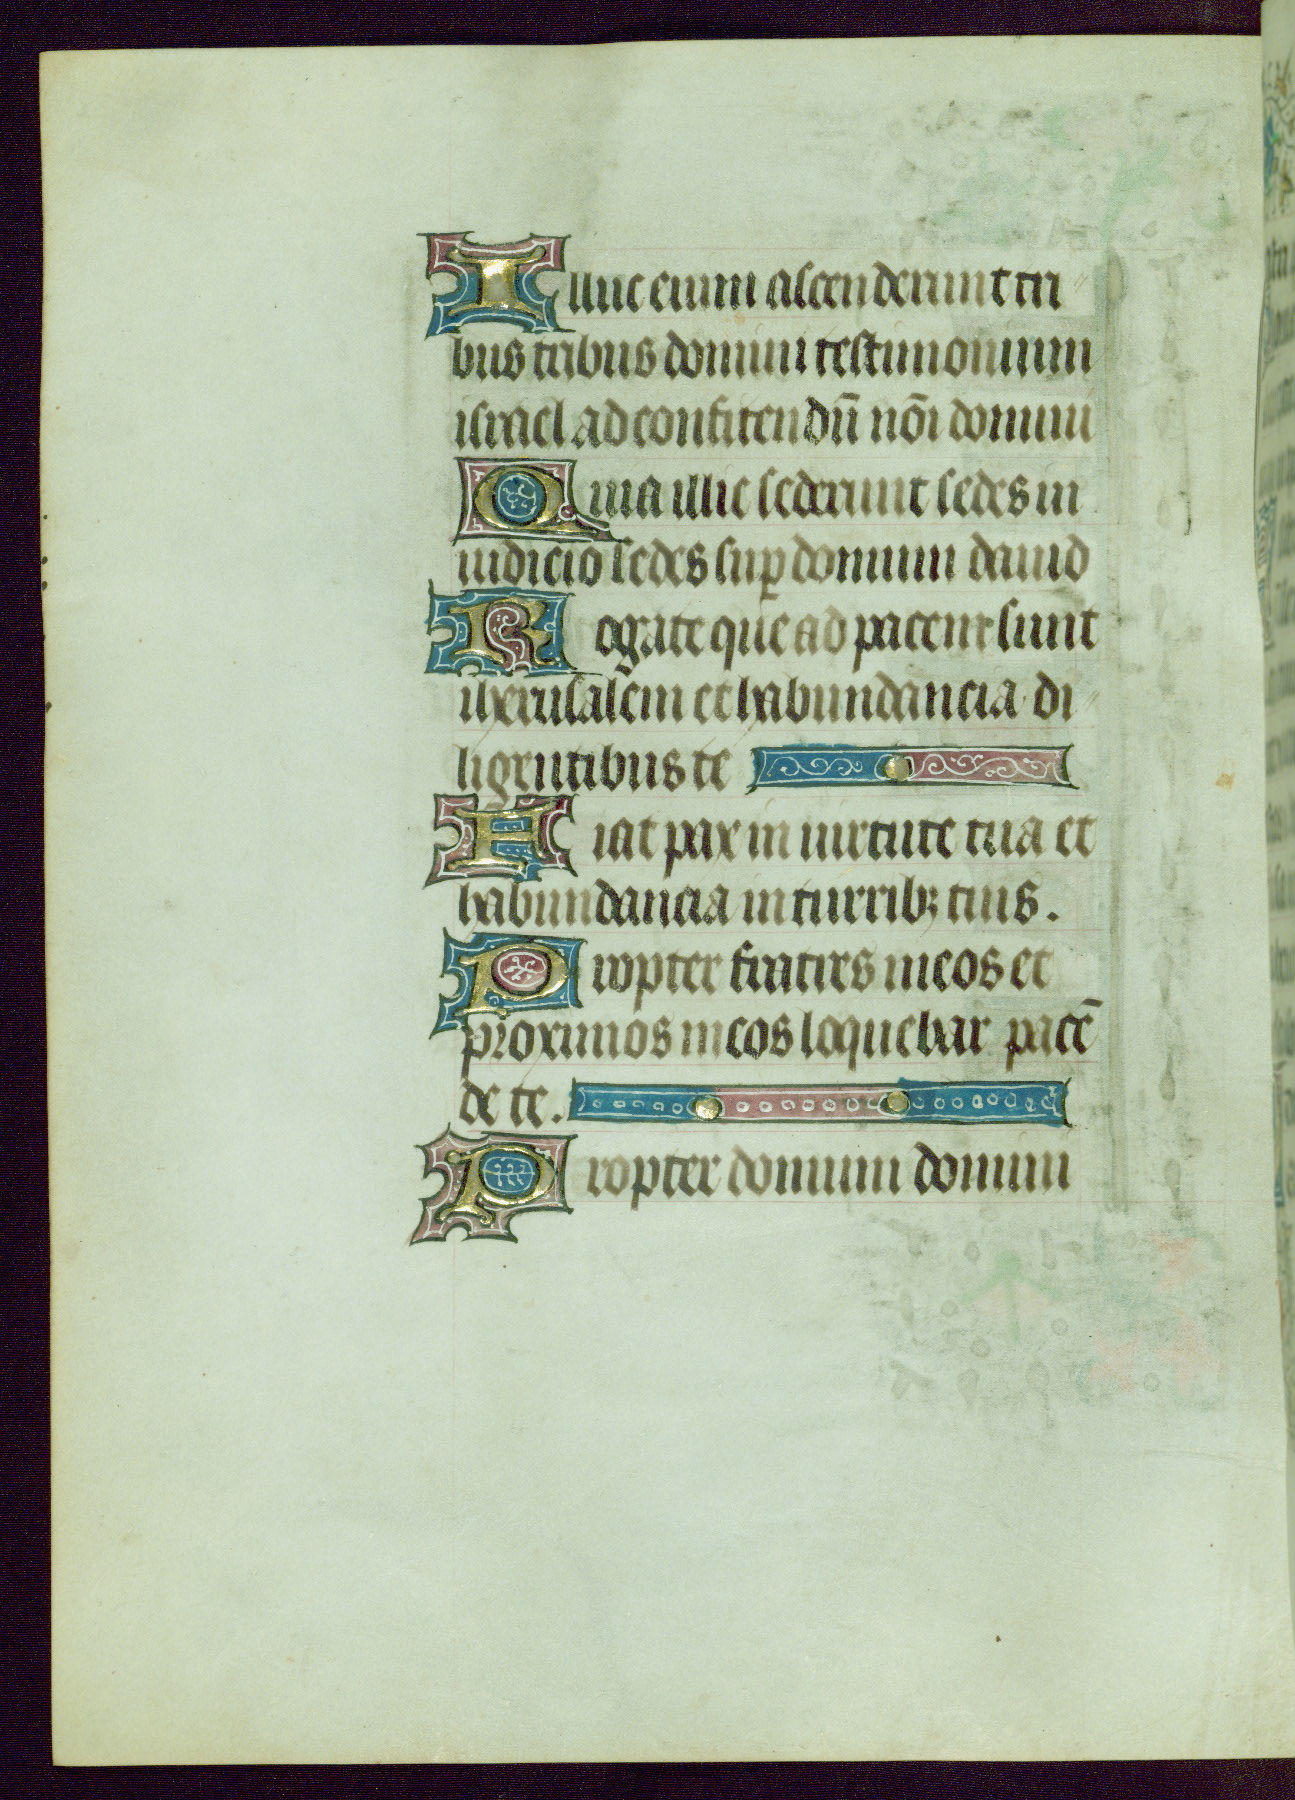 Illuc enim ascenderunt tri
bus tribus domini testimonium
israel ad confitendū nōi domini
Quia illic sederunt sedes in
iudicio sedes suꝑ domum dauid
Rogate que ad pacem sunt
iherusalem et habundancia di
ligentibus te
Fiat pax in uirtute tua et
habundancia in turribꝫ tuis.
Propter fratres meos et
proximos meos loquebar pacē
de te.
Propter domum domini